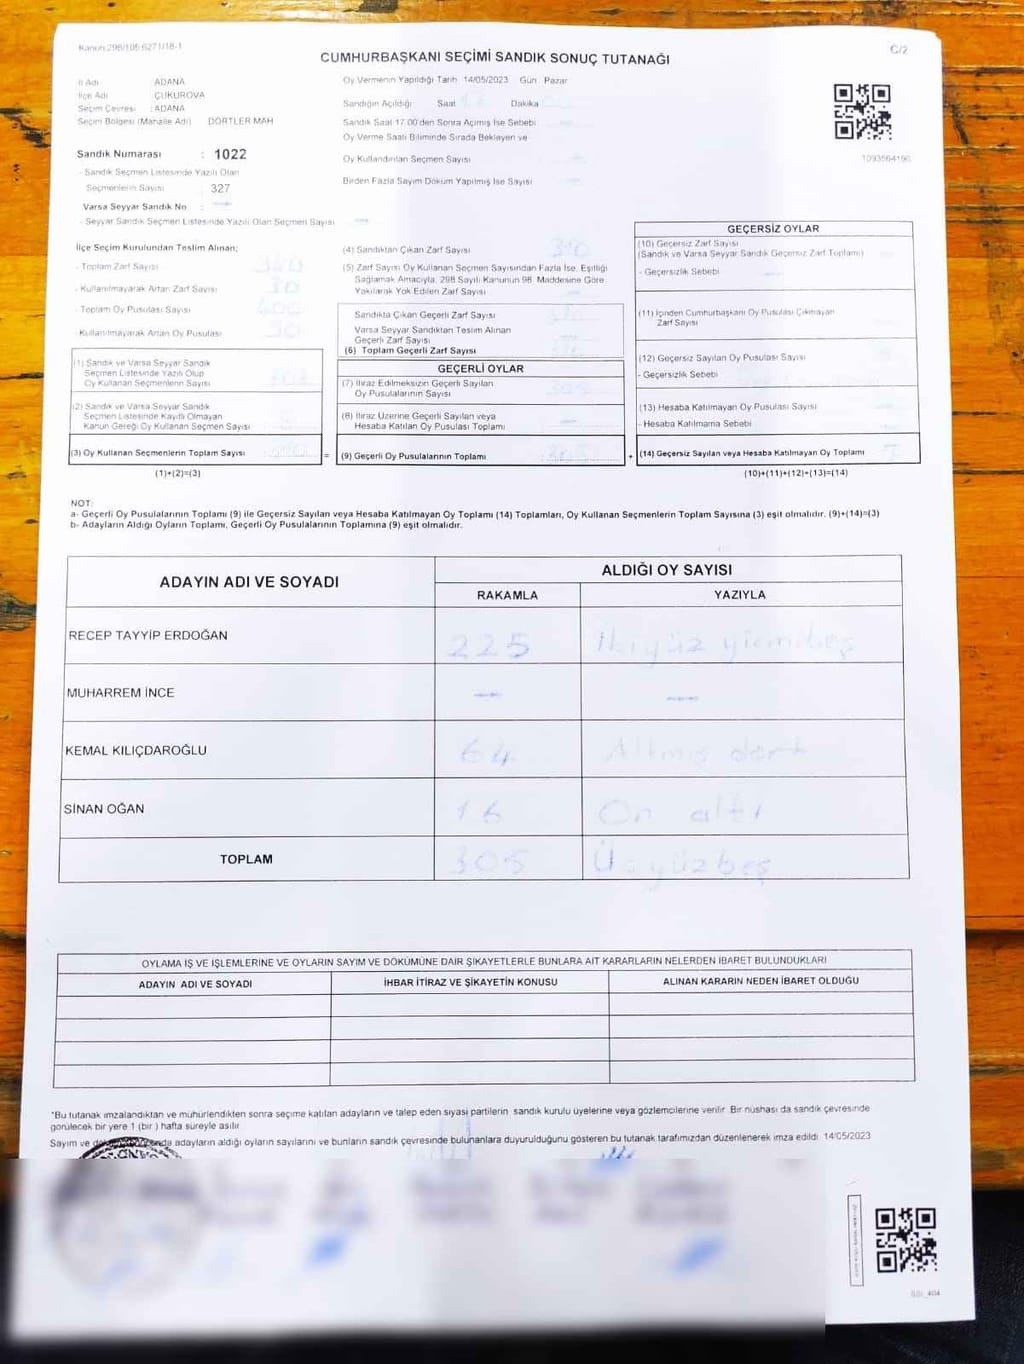 Kanun 298/105 6271/18-1
C/2
CUMHURBAŞKANI SEÇİMİ SANDIK SONUÇ TUTANAĞI
İl Adı ADANA
İlçe Adı ÇUKUROVA
Seçim Çevresi : ADANA
Seçim Bölgesi (Mahalle Adı) DÖRTLER MAH
Sandık Numarası : 1022
- Sandık Seçmen Listesinde Yazılı Olan
Seçmenlerin Sayısı : 327
Varsa Seyyar Sandık No —
- Seyyar Sandık Seçmen Listesinde Yazılı Olan Seçmen Sayısı —
Oy Vermenin Yapıldığı Tarih 14/05/2023 Gün Pazar
Sandığın Açıldığı Saat Dakika
Sandık Saat 17.00'den Sonra Açılmış İse Sebebi
Oy Verme Saati Bitiminde Sırada Bekleyen ve
Oy Kullandırılan Seçmen Sayısı —
Birden Fazla Sayım Döküm Yapılmış İse Sayısı —
1093564196
İlçe Seçim Kurulundan Teslim Alınan;
- Toplam Zarf Sayısı 340
- Kullanılmayarak Artan Zarf Sayısı 30
- Toplam Oy Pusulası Sayısı 400
- Kullanılmayarak Artan Oy Pusulası 90
(1) Sandık ve Varsa Seyyar Sandık
Seçmen Listesinde Yazılı Olup
Oy Kullanan Seçmenlerin Sayısı
(2) Sandık ve Varsa Seyyar Sandık
Seçmen Listesinde Kayıtlı Olmayan
Kanun Gereği Oy Kullanan Seçmen Sayısı
(3) Oy Kullanan Seçmenlerin Toplam Sayısı 310 =
(1)+(2)=(3)
(4) Sandıktan Çıkan Zarf Sayısı 310
(5) Zarf Sayısı Oy Kullanan Seçmen Sayısından Fazla İse, Eşitliği
Sağlamak Amacıyla, 298 Sayılı Kanunun 98. Maddesine Göre
Yakılarak Yok Edilen Zarf Sayısı —
Sandıkta Çıkan Geçerli Zarf Sayısı 310
Varsa Seyyar Sandıktan Teslim Alınan
Geçerli Zarf Sayısı —
(6) Toplam Geçerli Zarf Sayısı 310
GEÇERLİ OYLAR
(7) İtiraz Edilmeksizin Geçerli Sayılan
Oy Pusulalarının Sayısı 305
(8) İtiraz Üzerine Geçerli Sayılan veya
Hesaba Katılan Oy Pusulası Toplamı —
(9) Geçerli Oy Pusulalarının Toplamı 305 +
GEÇERSİZ OYLAR
(10) Geçersiz Zarf Sayısı
(Sandık ve Varsa Seyyar Sandık Geçersiz Zarf Toplamı)
- Geçersizlik Sebebi —
(11) İçinden Cumhurbaşkanı Oy Pusulası Çıkmayan
Zarf Sayısı
(12) Geçersiz Sayılan Oy Pusulası Sayısı
- Geçersizlik Sebebi
(13) Hesaba Katılmayan Oy Pusulası Sayısı
- Hesaba Katılmama Sebebi
(14) Geçersiz Sayılan veya Hesaba Katılmayan Oy Toplamı
(10)+(11)+(12)+(13)=(14)
NOT:
a- Geçerli Oy Pusulalarının Toplamı (9) ile Geçersiz Sayılan veya Hesaba Katılmayan Oy Toplamı (14) Toplamları, Oy Kullanan Seçmenlerin Toplam Sayısına (3) eşit olmalıdır. (9)+(14)=(3)
b- Adayların Aldığı Oyların Toplamı, Geçerli Oy Pusulalarının Toplamına (9) eşit olmalıdır.
ADAYIN ADI VE SOYADI ALDIĞI OY SAYISI
RAKAMLA YAZIYLA
RECEP TAYYİP ERDOĞAN 225 İkiyüz yirmibeş
MUHARREM İNCE — —
KEMAL KILIÇDAROĞLU 64 Altmış dört
SİNAN OĞAN 16 On altı
TOPLAM 305 Üçyüzbeş
OYLAMA İŞ VE İŞLEMLERİNE VE OYLARIN SAYIM VE DÖKÜMÜNE DAİR ŞİKAYETLERLE BUNLARA AİT KARARLARIN NELERDEN İBARET BULUNDUKLARI
ADAYIN ADI VE SOYADI İHBAR İTİRAZ VE ŞİKAYETİN KONUSU ALINAN KARARIN NEDEN İBARET OLDUĞU
*Bu tutanak imzalandıktan ve mühürlendikten sonra seçime katılan adayların ve talep eden siyasi partilerin sandık kurulu üyelerine veya gözlemcilerine verilir. Bir nüshası da sandık çevresinde
görülecek bir yere 1 (bir) hafta süreyle asılır.
Sayım ve adayların aldığı oyların sayılarını ve bunların sandık çevresinde bulunanlara duyurulduğunu gösteren bu tutanak tarafımızdan düzenlenerek imza edildi. 14/05/2023